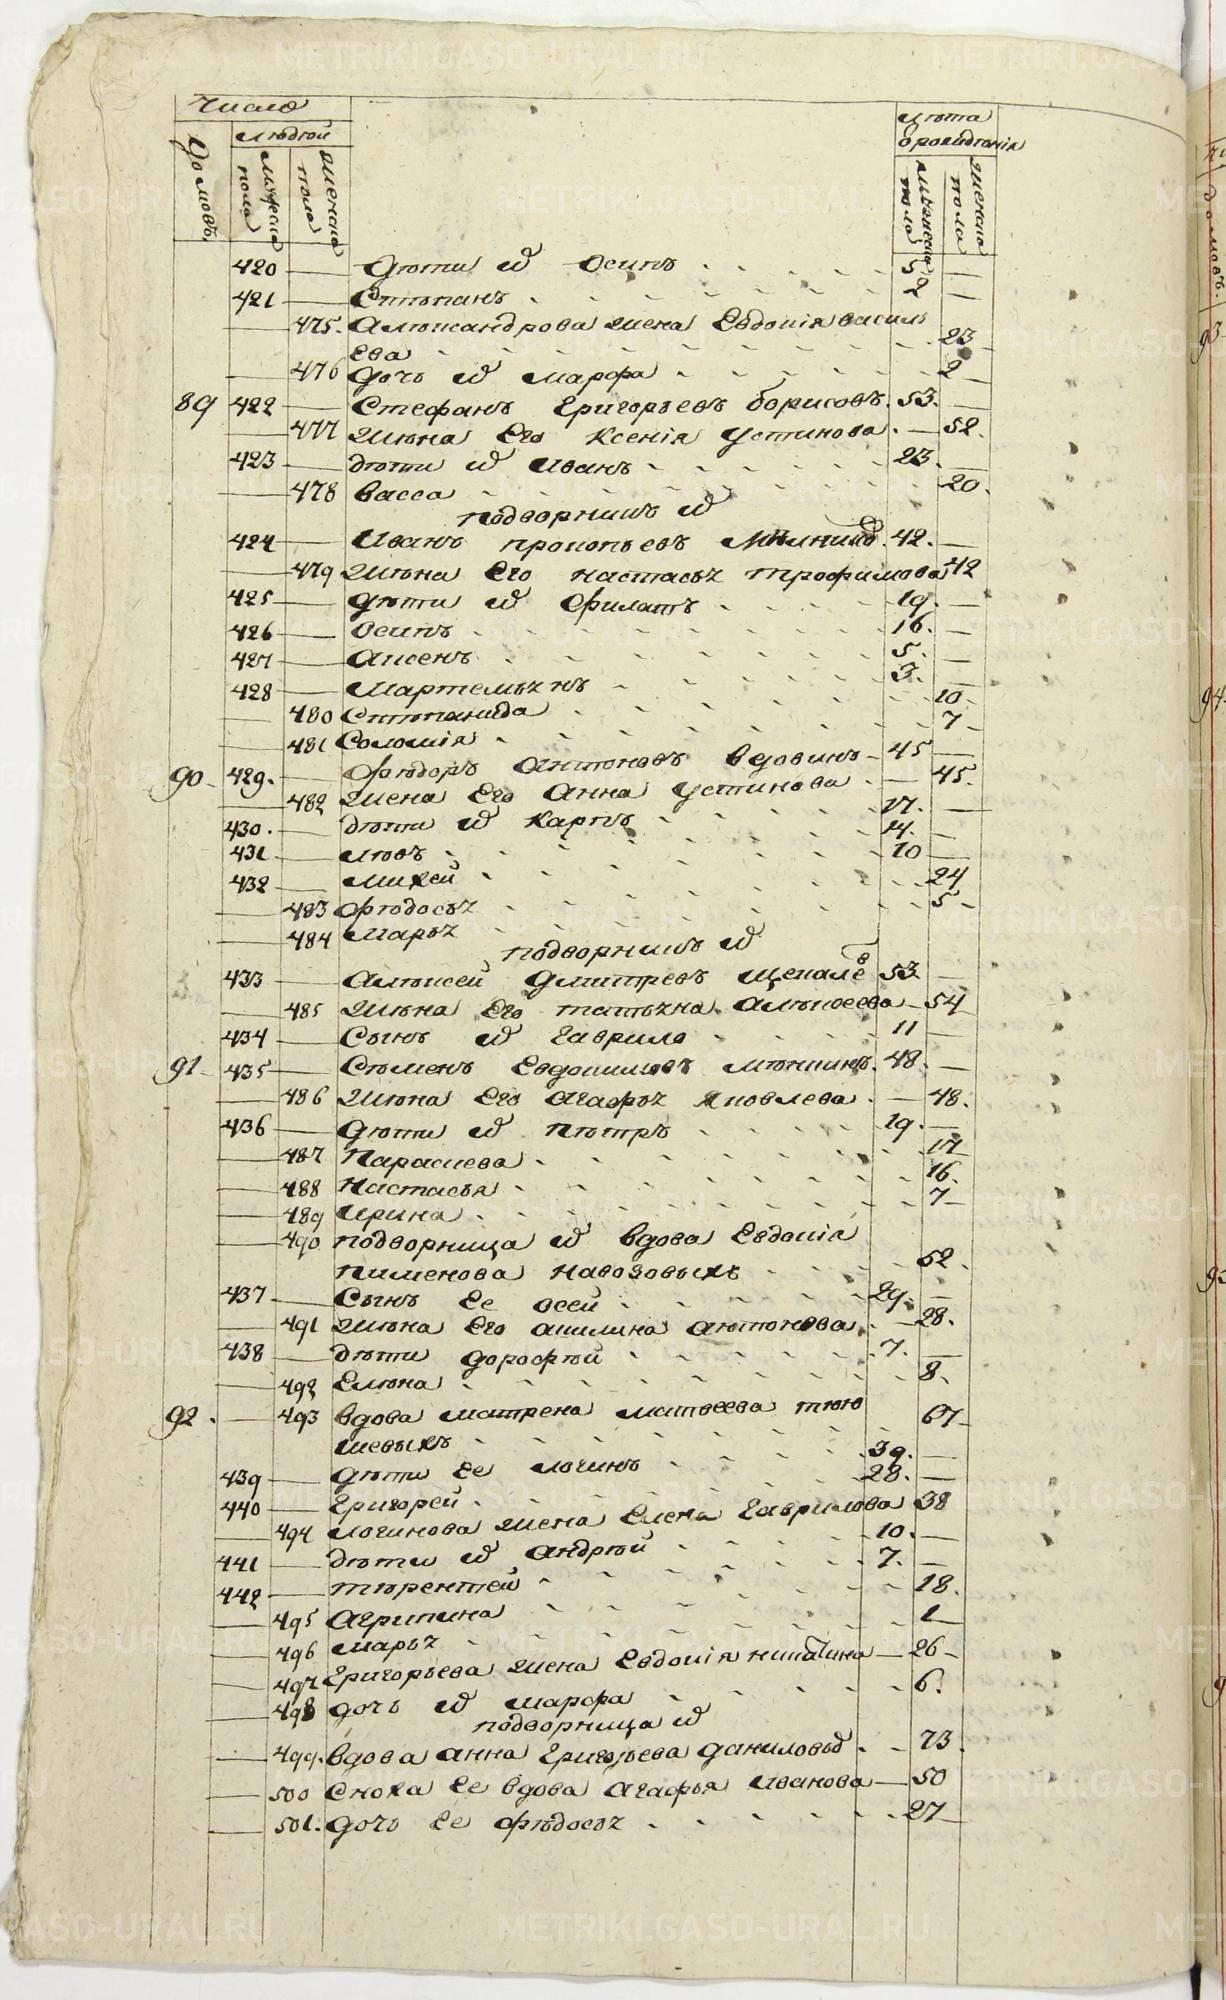 Число
людей
домовъ.
мужеска пола
женска пола
лѣта
ѿ рожденія
мужеска пола
женска пола
420 — дѣти их Осипъ 5 —
421 — Стѣпанъ 2 —
— 475. Алѣксандрова жена Евдокія васил
ева — 23
— 476 дочь их марфа — 2
89 422 — Стефанъ Григорьевъ борисовъ. 53. —
— 477 жѣна Его Ксенія Устинова — 52.
423 — дѣти их Иванъ 23. —
— 478 васса — 20.
подворникъ их
424 — Иванъ прокопьевъ 42. —
— 479 жѣна Его настасья трофимова 42
425 — дѣти их Филатъ 19. —
426 — Осипъ 16. —
427 — Аксенъ 5. —
428 — Мартемьянъ 3. —
— 480 Стѣпанида — 10.
— 481 Соломія — 7
90. 429. — Фѣдоръ Антоновъ вдовинъ 45 —
— 482 жена Его Анна Устинова — 45.
430. — дѣти их Карпъ 17. —
431 — Лѣвъ 14. —
432 — Михей 10 —
— 483 Фѣдосья — 24
— 484 Марья — 5
подворникъ их
433 — Алѣксей Дмитревъ 53 —
— 485 жѣна Его татьяна Алѣксеева — 54
434 — Сынъ их Гаврило 11 —
91. 435 — Сѣменъ Евдокимовъ мѣншинъ. 48. —
— 486 жѣна Его Агафья Яковлева — 48.
436 — дѣти их Пѣтръ 19. —
— 487 Парасковья — 17
— 488 Настасья — 16.
— 489 Ирина — 7
— 490 подворница их вдова Евдокія
пименова навозовыхъ — 52.
437 — Сынъ Ее Осей 29. —
— 491 жѣна Его акилина антонова — 28.
438 — дѣти дорофѣй 7. —
— 492 Елѣна — 8.
92. — 493 вдова матрена матвѣева тюю
шевыхъ 67
439 — дѣти Ее логинъ 39. —
440 — Григорей 28. —
— 494 логинова жена Елена Гаврилова 38
441 — дѣти их андрѣй 10. —
442 — тѣрентей 7. —
— 495 агрипина — 18.
— 496 марья — 1
— 497 Григорьева жена Евдокія никитина — 26
— 498 дочь их марфа — 6.
подворница их
— 499. вдова анна Григорьева даниловых — 73.
— 500 Сноха Ее вдова Агафья Иванова — 50
— 501. дочь Ее фѣдосья — 27